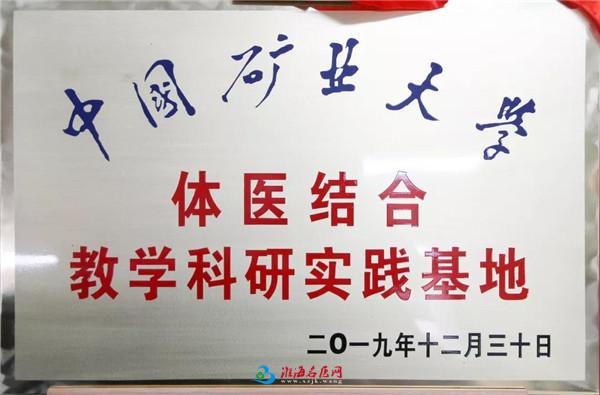 中国矿业大学
体医结合
教学科研实践基地
二〇一九年十二月三十日
淮海名医网
www.xzjk.wang